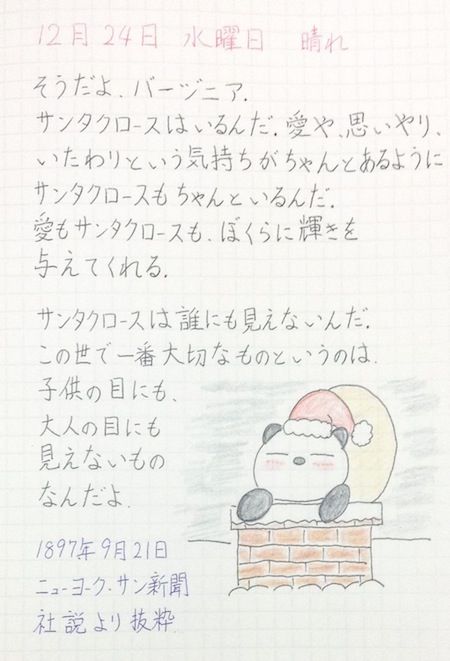 12月24日 水曜日 晴れ
そうだよ、バージニア.
サンタクロースはいるんだ.愛や、思いやり、
いたわりという気持ちがちゃんとあるように
サンタクロースもちゃんといるんだ.
愛もサンタクロースも、ぼくらに輝きを
与えてくれる.
サンタクロースは誰にも見えないんだ.
この世で一番大切なものというのは、
子供の目にも、
大人の目にも
見えないもの
なんだよ.
1897年9月21日
ニューヨーク.サン新聞
社説より抜粋